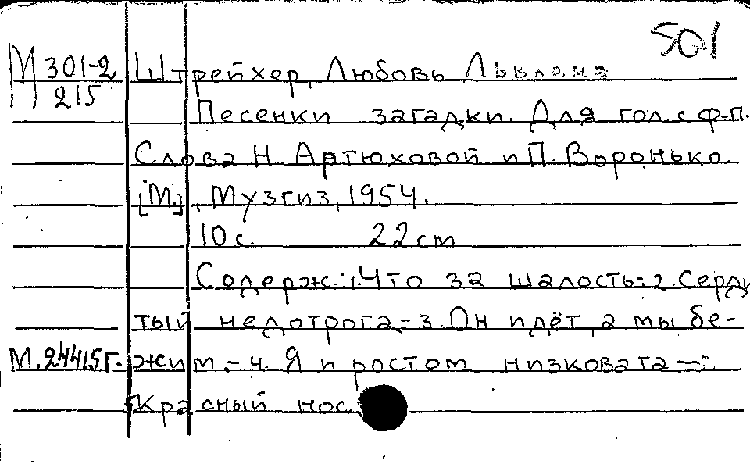 501
М 301-2
215
Штрейхер, Любовь Львовна
Песенки загадки. Для гол. с ф-п.
Слова Н. Артюховой и П. Воронько.
[М.], Музгиз, 1954.
10 с. 22 cm
Содерж.: 1. Что за шалость - 2. Серди
тый недотрога. - 3. Он идёт, а мы бе-
М. 24415 г. жим. - 4. Я и ростом низковата -
Красный нос